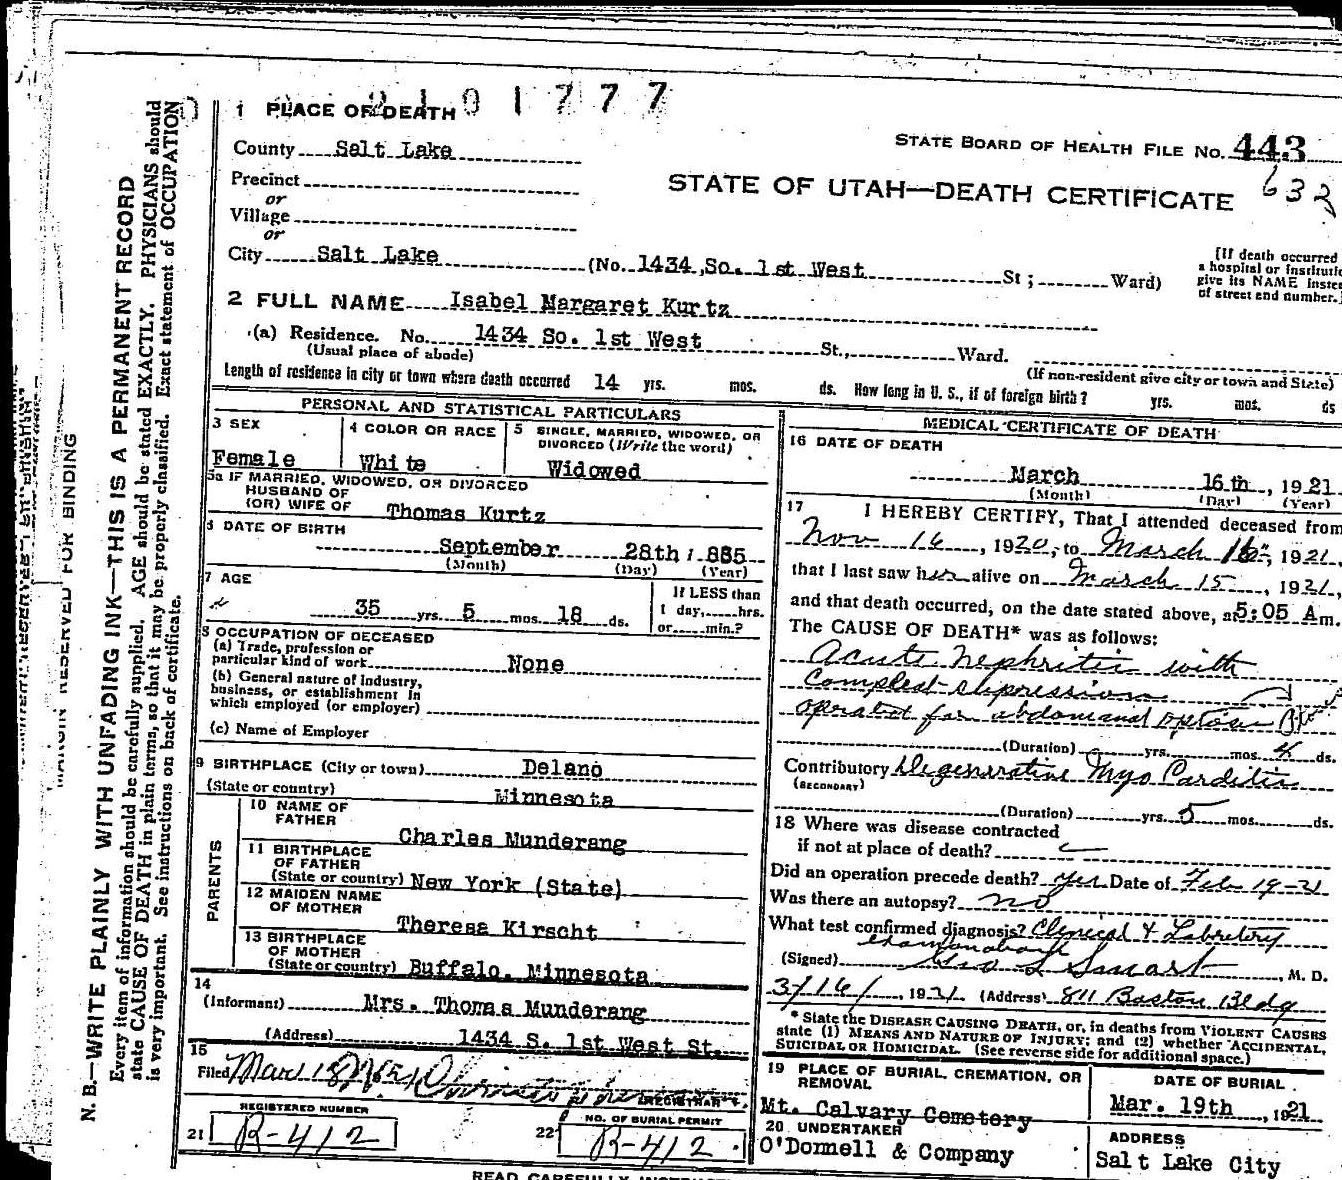 2101777
1 PLACE OF DEATH
County Salt Lake
STATE BOARD OF HEALTH FILE No. 443
632
Precinct
or
Village
or
STATE OF UTAH—DEATH CERTIFICATE
City Salt Lake (No. 1434 So. 1st West St; Ward)
[If death occurred
a hospital or instituti
give its NAME inste
of street end number.]
2 FULL NAME Isabel Margaret Kurtz
(a) Residence. No. 1434 So. 1st West St., Ward.
(Usual place of abode) (If non-resident give city or town and State)
Length of residence in city or town where death occurred 14 yrs. mos. ds. How long in U. S., if of foreign birth? yrs. mos. ds
PERSONAL AND STATISTICAL PARTICULARS
3 SEX
Female
4 COLOR OR RACE
White
5 SINGLE, MARRIED, WIDOWED, OR
DIVORCED (Write the word)
Widowed
5a IF MARRIED, WIDOWED, OR DIVORCED
HUSBAND OF
(OR) WIFE OF Thomas Kurtz
6 DATE OF BIRTH
September 28th 1885
(Month) (Day) (Year)
7 AGE
35 yrs. 5 mos. 18 ds.
If LESS than
1 day, hrs.
or min.?
8 OCCUPATION OF DECEASED
(a) Trade, profession or
particular kind of work None
(b) General nature of Industry,
business, or establishment in
which employed (or employer)
(c) Name of Employer
9 BIRTHPLACE (City or town) Delano
(State or country) Minnesota
PARENTS
10 NAME OF
FATHER Charles Munderang
11 BIRTHPLACE
OF FATHER
(State or country) New York (State)
12 MAIDEN NAME
OF MOTHER Theresa Kirscht
13 BIRTHPLACE
OF MOTHER
(State or country) Buffalo. Minnesota
14
(Informant) Mrs. Thomas Munderang
(Address) 1434 S. 1st West St.
15
Filed Mar 18
REGISTRAR
REGISTERED NUMBER
21 R-412
NO. OF BURIAL PERMIT
22 R-412
MEDICAL CERTIFICATE OF DEATH
16 DATE OF DEATH
March 16th, 1921
(Month) (Day) (Year)
17 I HEREBY CERTIFY, That I attended deceased from
Nov 16, 1920, to March 16", 1921,
that I last saw her alive on March 15, 1921,
and that death occurred, on the date stated above, at 5:05 Am.
The CAUSE OF DEATH* was as follows:
Acute Nephritis with
Complest supression
operated for abdominal optosis
(Duration) yrs. mos. 4 ds.
Contributory Degenerative Myo Carditis
(SECONDARY)
(Duration) yrs. 5 mos. ds.
18 Where was disease contracted
if not at place of death?
Did an operation precede death? yes Date of Feb 19-21
Was there an autopsy? no
What test confirmed diagnosis? Clenical & Labretory
examonation
(Signed) Geo L Smart, M. D.
3/16/, 1921 (Address) 811 Boston Bldg
* State the DISEASE CAUSING DEATH, or, in deaths from VIOLENT CAUSES
state (1) MEANS AND NATURE OF INJURY; and (2) whether ACCIDENTAL,
SUICIDAL OR HOMICIDAL. (See reverse side for additional space.)
19 PLACE OF BURIAL, CREMATION, OR
REMOVAL
Mt. Calvary Cemetery
DATE OF BURIAL
Mar. 19th, 1921
20 UNDERTAKER
O'Donnell & Company
ADDRESS
Salt Lake City
MARGIN RESERVED FOR BINDING
N. B.—WRITE PLAINLY WITH UNFADING INK—THIS IS A PERMANENT RECORD
Every item of information should be carefully supplied. AGE should be stated EXACTLY. PHYSICIANS should
state CAUSE OF DEATH in plain terms, so that it may be properly classified. Exact statement of OCCUPATION
is very important. See instructions on back of certificate.